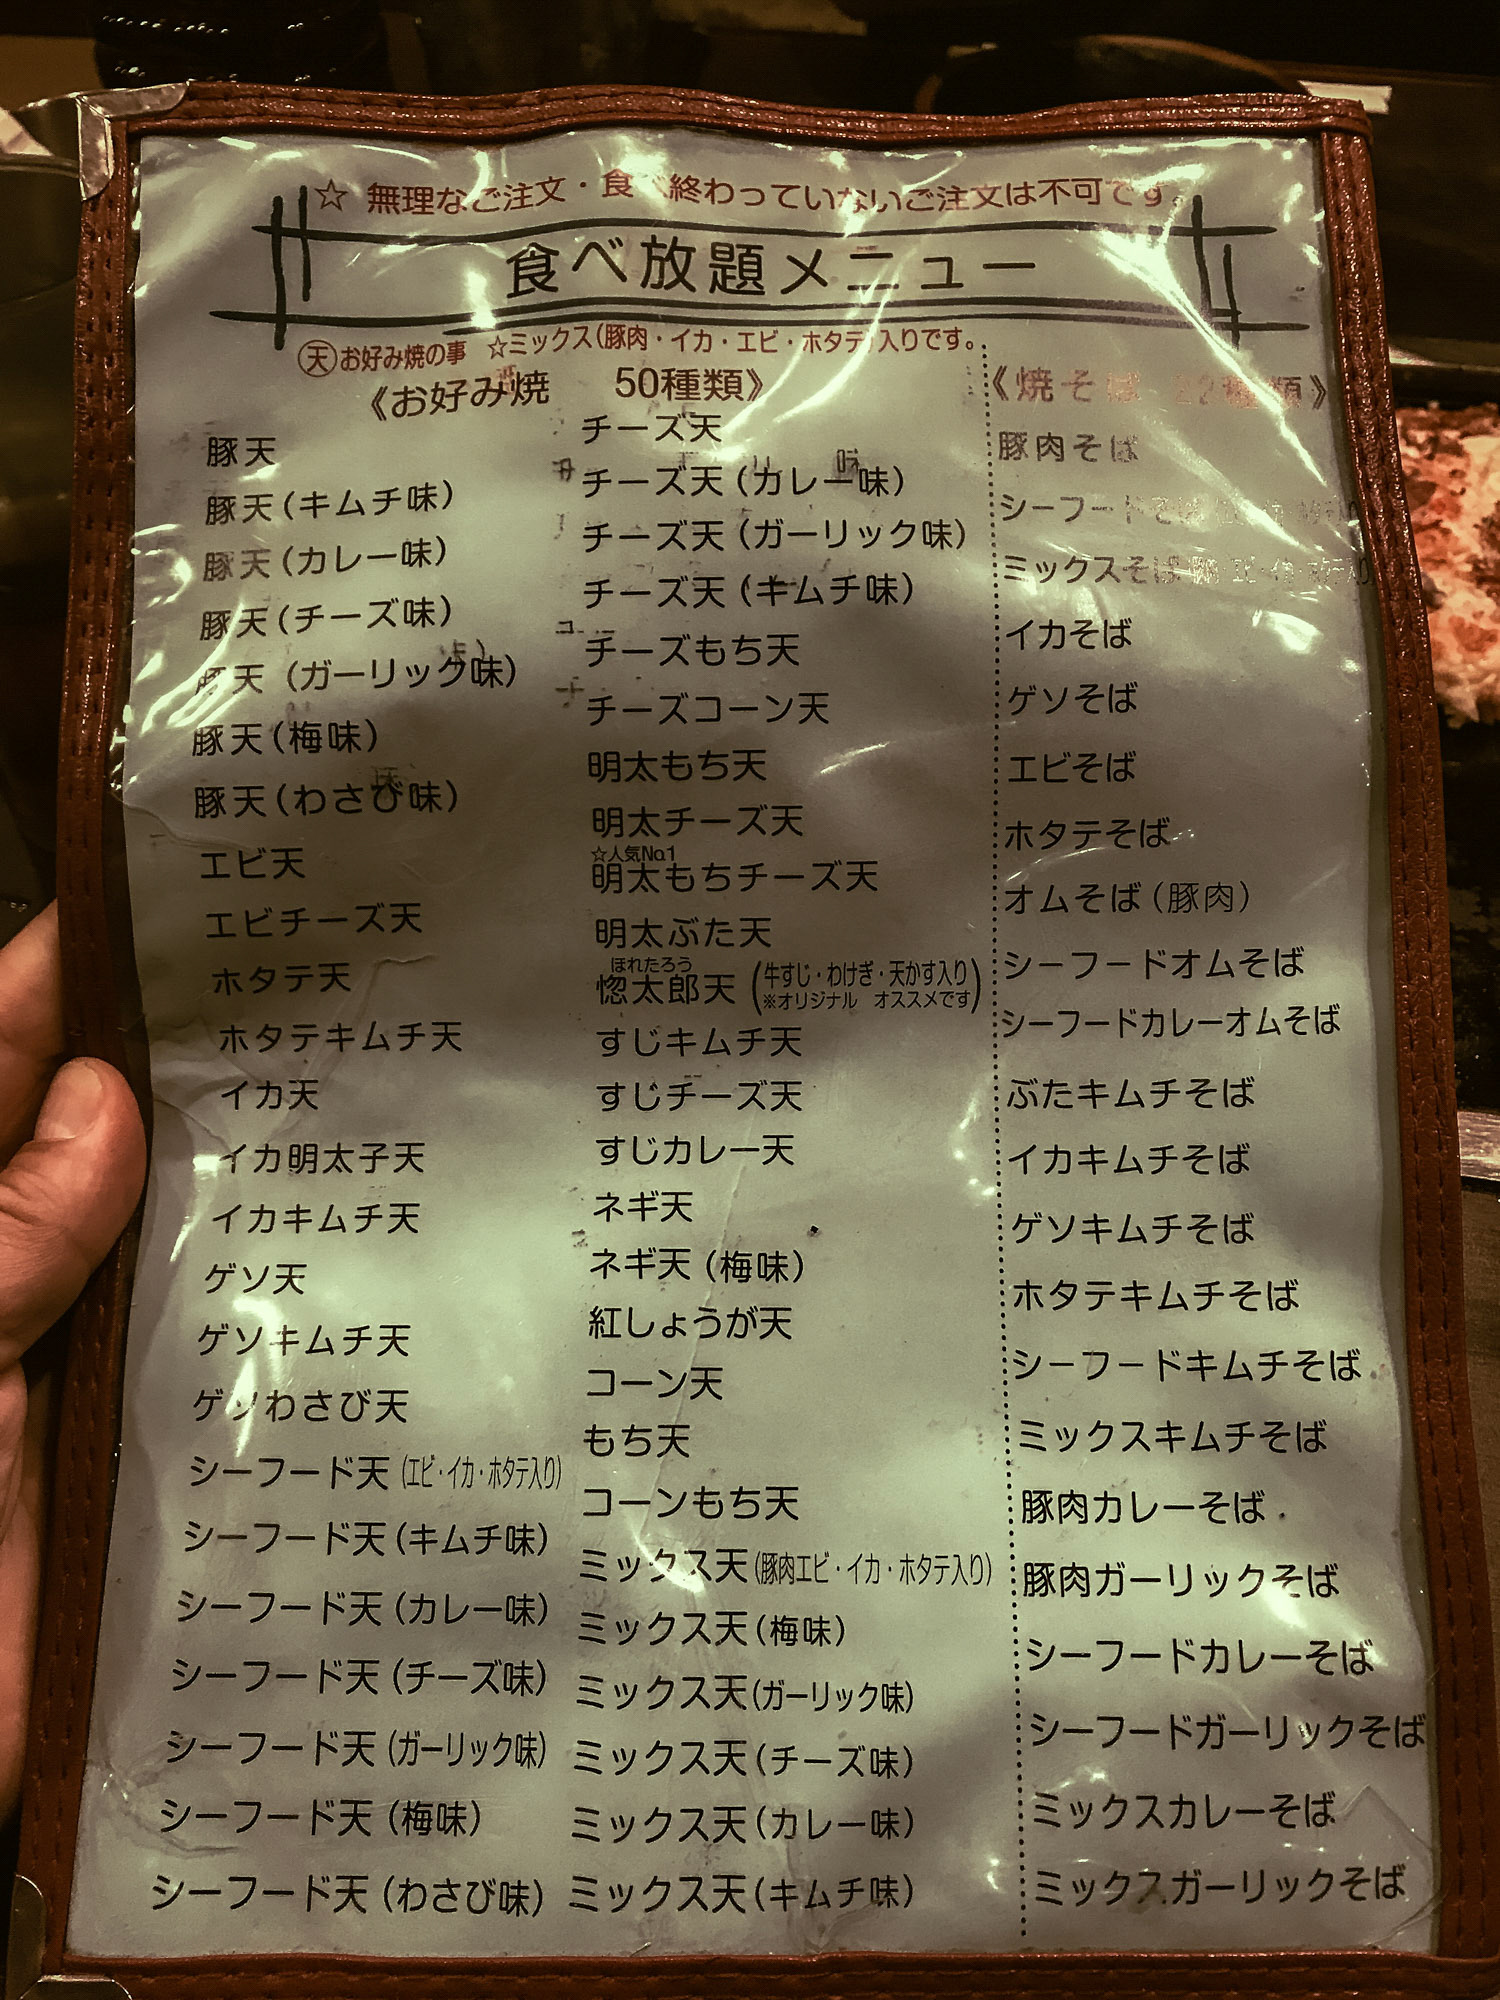 ☆ 無理なご注文・食べ終わっていないご注文は不可です。
食べ放題メニュー
天お好み焼の事 ☆ミックス(豚肉・イカ・エビ・ホタテ)入りです。
《お好み焼 50種類》
豚天
豚天(キムチ味)
豚天(カレー味)
豚天(チーズ味)
豚天(ガーリック味)
豚天(梅味)
豚天(わさび味)
エビ天
エビチーズ天
ホタテ天
ホタテキムチ天
イカ天
イカ明太子天
イカキムチ天
ゲソ天
ゲソキムチ天
ゲソわさび天
シーフード天(エビ・イカ・ホタテ入り)
シーフード天(キムチ味)
シーフード天(カレー味)
シーフード天(チーズ味)
シーフード天(ガーリック味)
シーフード天(梅味)
シーフード天(わさび味)
チーズ天
チーズ天(カレー味)
チーズ天(ガーリック味)
チーズ天(キムチ味)
チーズもち天
チーズコーン天
明太もち天
明太チーズ天
☆人気No.1
明太もちチーズ天
明太ぶた天
ほれたろう
惚太郎天(牛すじ・わけぎ・天かす入り
※オリジナル オススメです)
すじキムチ天
すじチーズ天
すじカレー天
ネギ天
ネギ天(梅味)
紅しょうが天
コーン天
もち天
コーンもち天
ミックス天(豚肉エビ・イカ・ホタテ入り)
ミックス天(梅味)
ミックス天(ガーリック味)
ミックス天(チーズ味)
ミックス天(カレー味)
ミックス天(キムチ味)
《焼そば 22種類》
豚肉そば
シーフードそば
ミックスそば(豚肉・エビ・イカ・ホタテ入り)
イカそば
ゲソそば
エビそば
ホタテそば
オムそば(豚肉)
シーフードオムそば
シーフードカレーオムそば
ぶたキムチそば
イカキムチそば
ゲソキムチそば
ホタテキムチそば
シーフードキムチそば
ミックスキムチそば
豚肉カレーそば
豚肉ガーリックそば
シーフードカレーそば
シーフードガーリックそば
ミックスカレーそば
ミックスガーリックそば